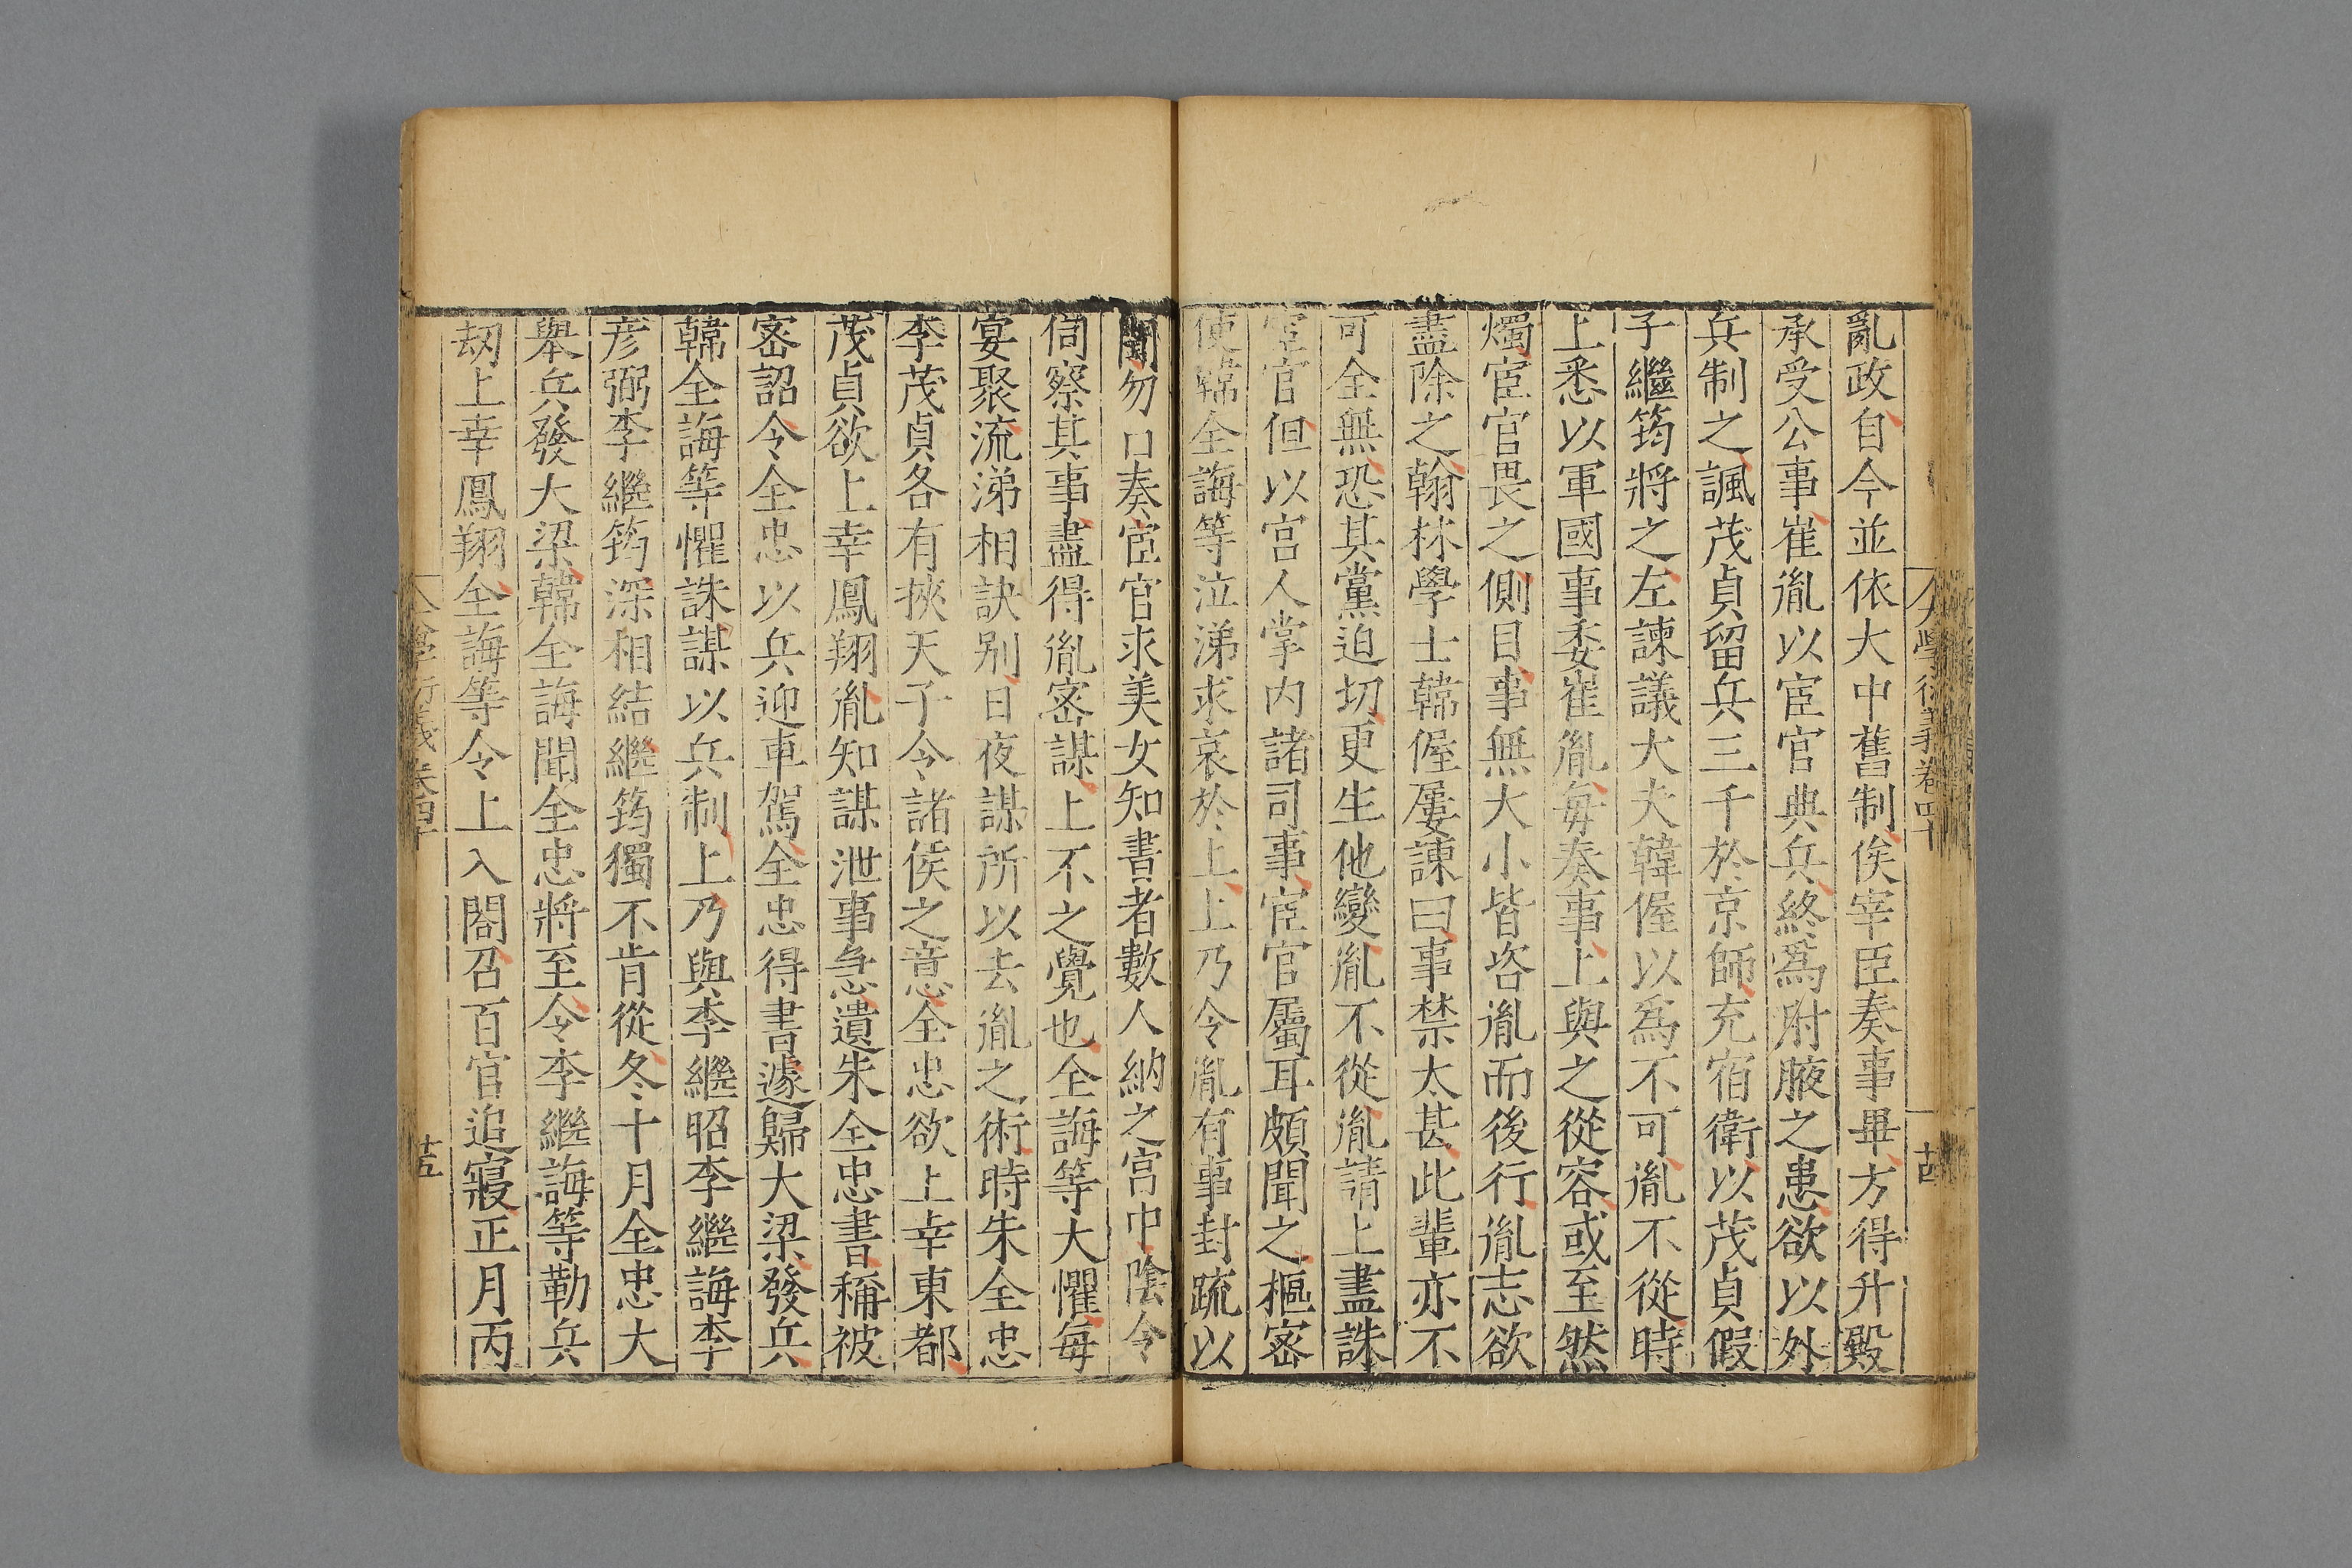 大學衍義卷四十
廿四
亂政自今並依大中舊制俟宰臣奏事畢方得升殿
承受公事崔胤以宦官典兵終爲肘腋之患欲以外
兵制之諷茂貞留兵三千於京師充宿衛以茂貞假
子繼筠將之左諫議大夫韓偓以爲不可胤不從時
上悉以軍國事委崔胤每奏事上與之從容或至然
燭宦官畏之側目事無大小皆咨胤而後行胤志欲
盡除之翰林學士韓偓屢諫曰事禁太甚此輩亦不
可全無恐其黨迫切更生他變胤不從胤請上盡誅
宦官但以宮人掌内諸司事宦官屬耳頗聞之樞宻
使韓全誨等泣涕求哀於上上乃令胤有事封疏以
聞勿口奏宦官求美女知書者數人納之宮中隂令
伺察其事盡得胤宻謀上不之覺也全誨等大懼每
宴聚流涕相訣别日夜謀所以去胤之術時朱全忠
李茂貞各有挾天子令諸侯之意全忠欲上幸東都
茂貞欲上幸鳳翔胤知謀泄事急遺朱全忠書稱被
宻詔令全忠以兵迎車駕全忠得書遽歸大梁發兵
韓全誨等懼誅謀以兵制上乃與李繼昭李繼誨李
彦弼李繼筠深相結繼筠獨不肯從冬十月全忠大
舉兵發大梁韓全誨聞全忠將至令李繼誨等勒兵
刼上幸鳳翔全誨等令上入閤召百官追寢正月丙
大學衍義卷四十
廿五